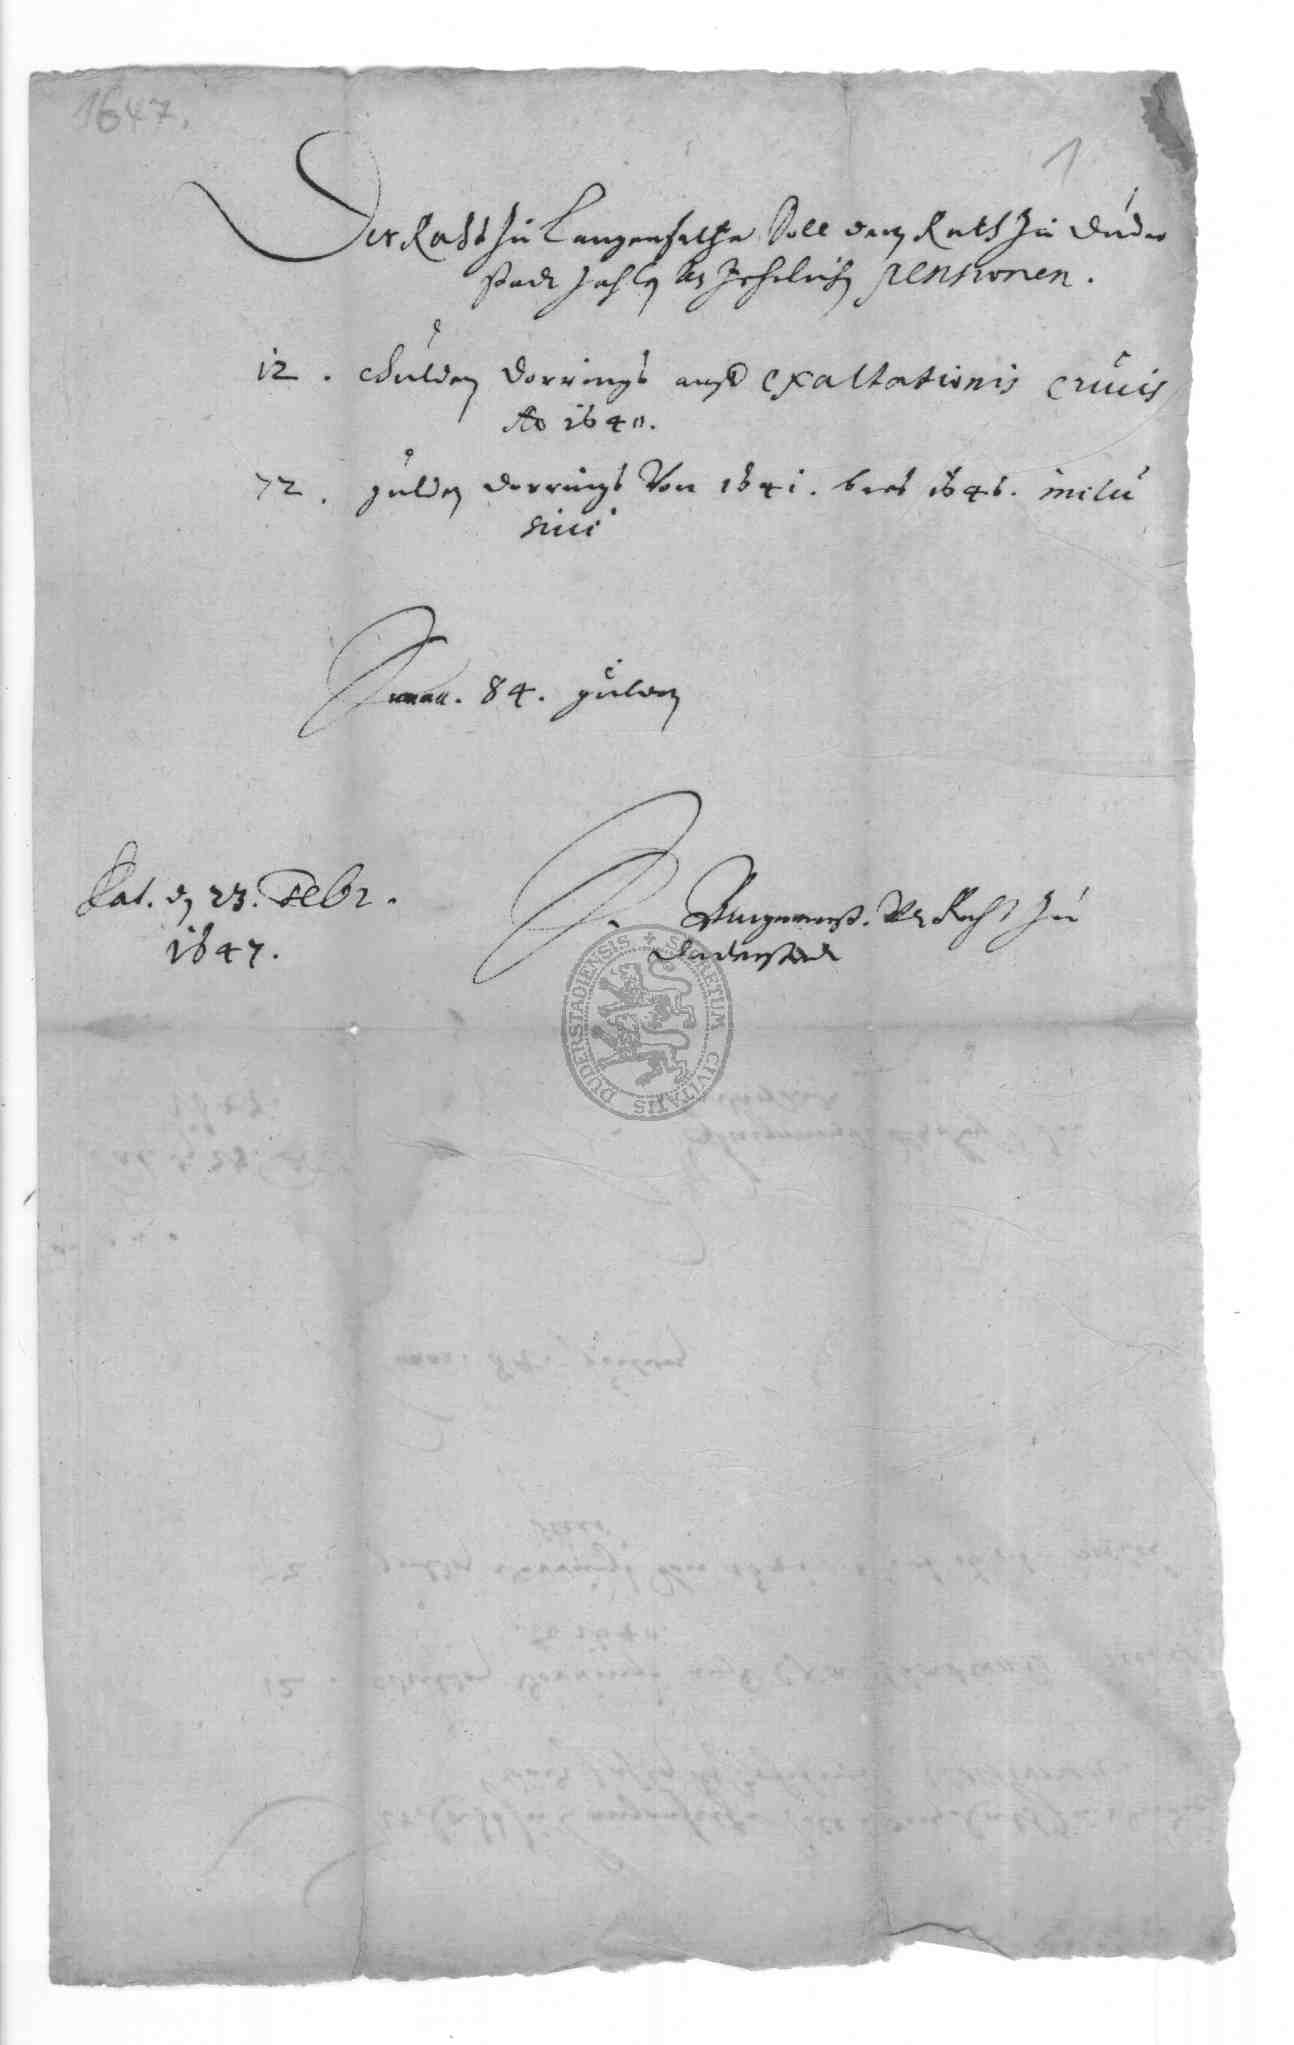 1647.
1
Der Raht zu Langensaltza Soll dem Raht zu Duder
stadt zahlen an Jehrlichen pensionen.
12. Gulden Dorrings auff Exaltationis crucis
Ao 1640.
72. gulden Dorrings Von 1641. bies 1646. inclu
sive
Summa. 84. gulden
Dat. den 23. Febr.
1647.
Burgermeist. Und Raht zu
Duderstadt
SECRETUM CIVITATIS DUDERSTADIENSIS